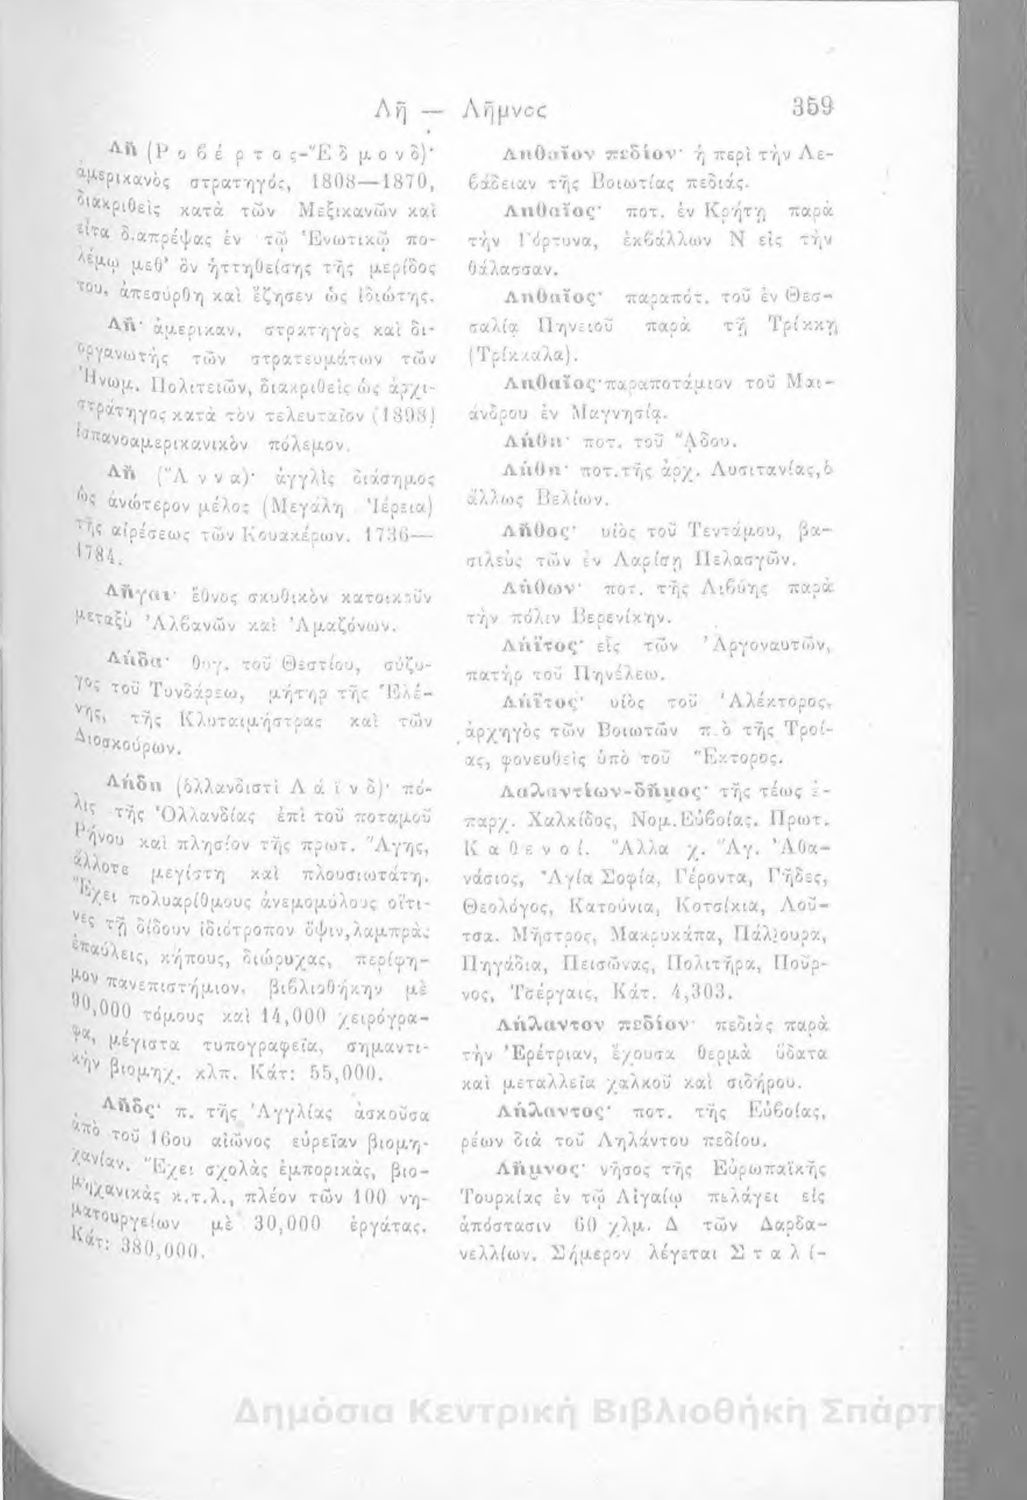 Λῆ — Λῆμνος 359
Λῆ (Ροβέρτος-Ἐδμονδ)·
ἀμερικανὸς στρατηγός, 1808—1870,
διακριθεὶς κατὰ τῶν Μεξικανῶν καὶ
εἶτα διαπρέψας ἐν τῷ Ἑνωτικῷ πο-
λέμῳ μεθ’ ὃν ἡττηθείσης τῆς μερίδος
του, ἀπεσύρθη καὶ ἔζησεν ὡς ἰδιώτης.
Λῆ· ἀμερικαν. στρατηγὸς καὶ δι-
οργανωτὴς τῶν στρατευμάτων τῶν
Ἡνωμ. Πολιτειῶν, διακριθεὶς ὡς ἀρχι-
στράτηγος κατὰ τὸν τελευταῖον (1898)
ἱσπανοαμερικανικὸν πόλεμον.
Λῆ (Ἄννα)· ἀγγλὶς διάσημος
ὡς ἀνώτερον μέλος (Μεγάλη Ἱέρεια)
τῆς αἱρέσεως τῶν Κουακέρων. 1736—
1784.
Λῆγαι· ἔθνος σκυθικὸν κατοικοῦν
μεταξὺ Ἀλβανῶν καὶ Ἀμαζόνων.
Λήδα· θυγ. τοῦ Θεστίου, σύζυ-
γος τοῦ Τυνδάρεω, μήτηρ τῆς Ἑλέ-
νης, τῆς Κλυταιμήστρας καὶ τῶν
Διοσκούρων.
Λήδη (ὁλλανδιστὶ Λάϊνδ)· πό-
λις τῆς Ὁλλανδίας ἐπὶ τοῦ ποταμοῦ
Ρήνου καὶ πλησίον τῆς πρωτ. Ἅγης,
ἄλλοτε μεγίστη καὶ πλουσιωτάτη.
Ἔχει πολυαρίθμους ἀνεμομύλους οἵτι-
νες τῇ δίδουν ἰδιότροπον ὄψιν, λαμπρὰς
ἐπαύλεις, κήπους, διώρυχας, περίφη-
μον πανεπιστήμιον, βιβλιοθήκην μὲ
90,000 τόμους καὶ 14,000 χειρόγρα-
φα, μέγιστα τυπογραφεῖα, σημαντι-
κὴν βιομηχ. κλπ. Κάτ: 55,000.
Λῆδς· π. τῆς Ἀγγλίας ἀσκοῦσα
ἀπὸ τοῦ 16ου αἰῶνος εὐρεῖαν βιομη-
χανίαν. Ἔχει σχολὰς ἐμπορικὰς, βιο-
μηχανικὰς κ.τ.λ., πλέον τῶν 100 νη-
ματουργείων μὲ 30,000 ἐργάτας.
Κάτ: 380,000.
Ληθαῖον πεδίον· ἡ περὶ τὴν Λε-
βάδειαν τῆς Βοιωτίας πεδιάς.
Ληθαῖος· ποτ. ἐν Κρήτῃ παρὰ
τὴν Γόρτυνα, ἐκβάλλων Ν εἰς τὴν
θάλασσαν.
Ληθαῖος· παραπότ. τοῦ ἐν Θεσ-
σαλίᾳ Πηνειοῦ παρὰ τῇ Τρίκκῃ
(Τρίκκαλα).
Ληθαῖος· παραποτάμιον τοῦ Μαι-
άνδρου ἐν Μαγνησίᾳ.
Λήθη· ποτ. τοῦ Ἅδου.
Λήθη· ποτ. τῆς ἀρχ. Λυσιτανίας, ὁ
ἄλλως Βελίων.
Λῆθος· υἱὸς τοῦ Τεντάμου, βα-
σιλεὺς τῶν ἐν Λαρίσῃ Πελασγῶν.
Λήθων· ποτ. τῆς Λιβύης παρὰ
τὴν πόλιν Βερενίκην.
Λήϊτος· εἷς τῶν Ἀργοναυτῶν,
πατὴρ τοῦ Πηνέλεω.
Λήϊτος· υἱὸς τοῦ Ἀλέκτορος,
ἀρχηγὸς τῶν Βοιωτῶν π.ὸ τῆς Τροί-
ας, φονευθεὶς ὑπὸ τοῦ Ἕκτορος.
Ληλαντίων-δῆμος· τῆς τέως ἐ-
παρχ. Χαλκίδος, Νομ. Εὐβοίας. Πρωτ.
Καθενοί. Ἄλλα χ. Ἅγ. Ἀθα-
νάσιος, Ἁγία Σοφία, Γέροντα, Γῆδες,
Θεολόγος, Κατούνια, Κοτσίκια, Λοῦ-
τσα. Μῆστρος, Μακρυκάπα, Πάλιουρα,
Πηγάδια, Πεισῶνας, Πολιτῆρα, Ποῦρ-
νος, Τσέργαις, Κάτ. 4,303.
Λήλαντον πεδίον· πεδιὰς παρὰ
τὴν Ἐρέτριαν, ἔχουσα θερμὰ ὕδατα
καὶ μεταλλεῖα χαλκοῦ καὶ σιδήρου.
Λήλαντος· ποτ. τῆς Εὐβοίας,
ρέων διὰ τοῦ Ληλάντου πεδίου.
Λῆμνος· νῆσος τῆς Εὐρωπαϊκῆς
Τουρκίας ἐν τῷ Αἰγαίῳ πελάγει εἰς
ἀπόστασιν 60 χλμ. Δ τῶν Δαρδα-
νελλίων. Σήμερον λέγεται Σταλί-
Δημόσια Κεντρική Βιβλιοθήκη Σπάρτ